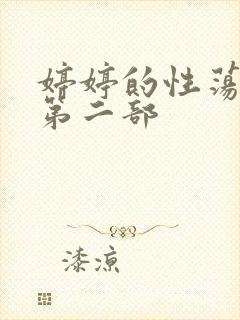 婷婷的性荡
第二部
漆凉